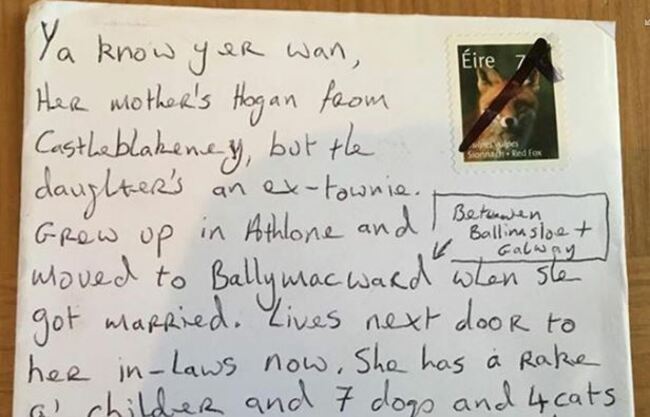 Ya know yer wan,
Her mother's Hogan from
Castleblakeney, but the
daughter's an ex-townie.
Grew up in Athlone and
moved to Ballymacward when she
got married. Lives next door to
her in-laws now. She has a rake
a' childer and 7 dogs and 4 cats
Between
Ballinasloe +
Galway
Éire 7
Vulpes vulpes
Sionnach • Red Fox